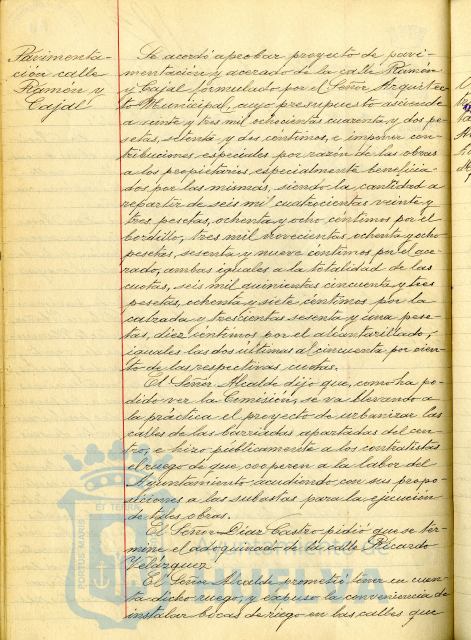 Pavimenta-
ción calle
Ramón y
Cajal
Se acordó aprobar proyecto de pavi-
mentación y acerado de la calle Ramón
y Cajal formulado por el Señor Arquitec-
to Municipal, cuyo presupuesto asciende
a veinte y tres mil ochocientas cuarenta y dos pe-
setas, setenta y dos céntimos, e imponer con-
tribuciones especiales por razón de las obras
a los propietarios especialmente beneficia-
dos por las mismas, siendo la cantidad a
repartir de seis mil cuatrocientas veinte y
tres pesetas, ochenta y ocho céntimos por el
bordillo, tres mil novecientas ochenta y ocho
pesetas, sesenta y nueve céntimos por el ace-
rado, ambas iguales a la totalidad de las
cuotas, seis mil quinientas cincuenta y tres
pesetas, ochenta y siete céntimos por la
calzada y trescientas sesenta y una pese-
tas, diez céntimos por el alcantarillado,
iguales las dos últimas al cincuenta por cien-
to de las respectivas cuotas.
El Señor Alcalde dijo que, como ha po-
dido ver la Comisión, se va llevando a
la práctica el proyecto de urbanizar las
calles de las barriadas apartadas del cen-
tro, e hizo públicamente a los contratistas
el ruego de que cooperen a la labor del
Ayuntamiento acudiendo con sus propo-
siciones a las subastas para la ejecución
de tales obras.
El Señor Díaz Castro pidió que se ter-
mine el adoquinado de la calle Ricardo
Velázquez.
El Señor Alcalde prometió tener en cuen-
ta dicho ruego, y expuso la conveniencia de
instalar bocas de riego en las calles que
PORTUS MARIS
ET TERRAE
HUELVA